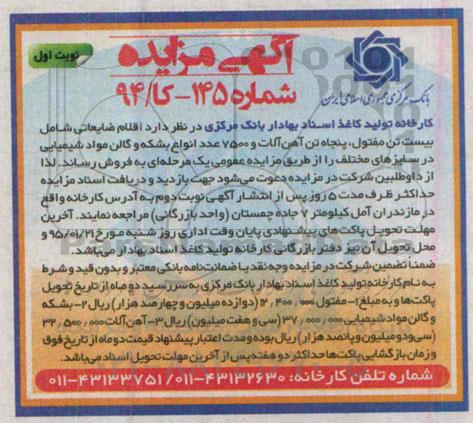 نوبت اول
آگهی مزایده
شماره ۱۴۵-کا/۹۴
بانک مرکزی جمهوری اسلامی ایران
کارخانه تولید کاغذ اسناد بهادار بانک مرکزی در نظر دارد اقلام ضایعاتی شامل
بیست تن مفتول، پنجاه تن آهن آلات و ۷۵۰۰ عدد انواع بشکه و گالن مواد شیمیایی
در سایزهای مختلف را از طریق مزایده عمومی یک مرحله‌ای به فروش رساند. لذا
از داوطلبین شرکت در مزایده دعوت می‌شود جهت بازدید و دریافت اسناد مزایده
حداکثر ظرف مدت ۵ روز پس از انتشار آگهی نوبت دوم به آدرس کارخانه واقع
در مازندران آمل کیلومتر ۷ جاده چمستان (واحد بازرگانی) مراجعه نمایند. آخرین
مهلت تحویل پاکت‌های پیشنهادی پایان وقت اداری روز شنبه مورخ ۹۵/۰۱/۲۱ و
محل تحویل آن نیز دفتر بازرگانی کارخانه تولید کاغذ اسناد بهادار می‌باشد.
ضمناً تضمین شرکت در مزایده وجه نقد یا ضمانت‌نامه بانکی معتبر و بدون قید و شرط
به نام کارخانه تولید کاغذ اسناد بهادار بانک مرکزی به سررسید دو ماه از تاریخ تحویل
پاکت‌ها و به مبلغ ۱- مفتول ۱۲٫۴۰۰٫۰۰۰ (دوازده میلیون و چهارصد هزار) ریال ۲- بشکه
و گالن مواد شیمیایی ۳۷٫۰۰۰٫۰۰۰ (سی و هفت میلیون) ریال ۳- آهن آلات ۳۲٫۵۰۰٫۰۰۰
(سی و دو میلیون و پانصد هزار) ریال بوده و مدت اعتبار پیشنهاد قیمت دو ماه از تاریخ فوق
و زمان بازگشایی پاکت‌ها حداکثر دو هفته پس از آخرین مهلت تحویل اسناد می‌باشد.
شماره تلفن کارخانه: ۴۳۱۳۲۶۳۰-۰۱۱ / ۴۳۱۳۳۷۵۱-۰۱۱